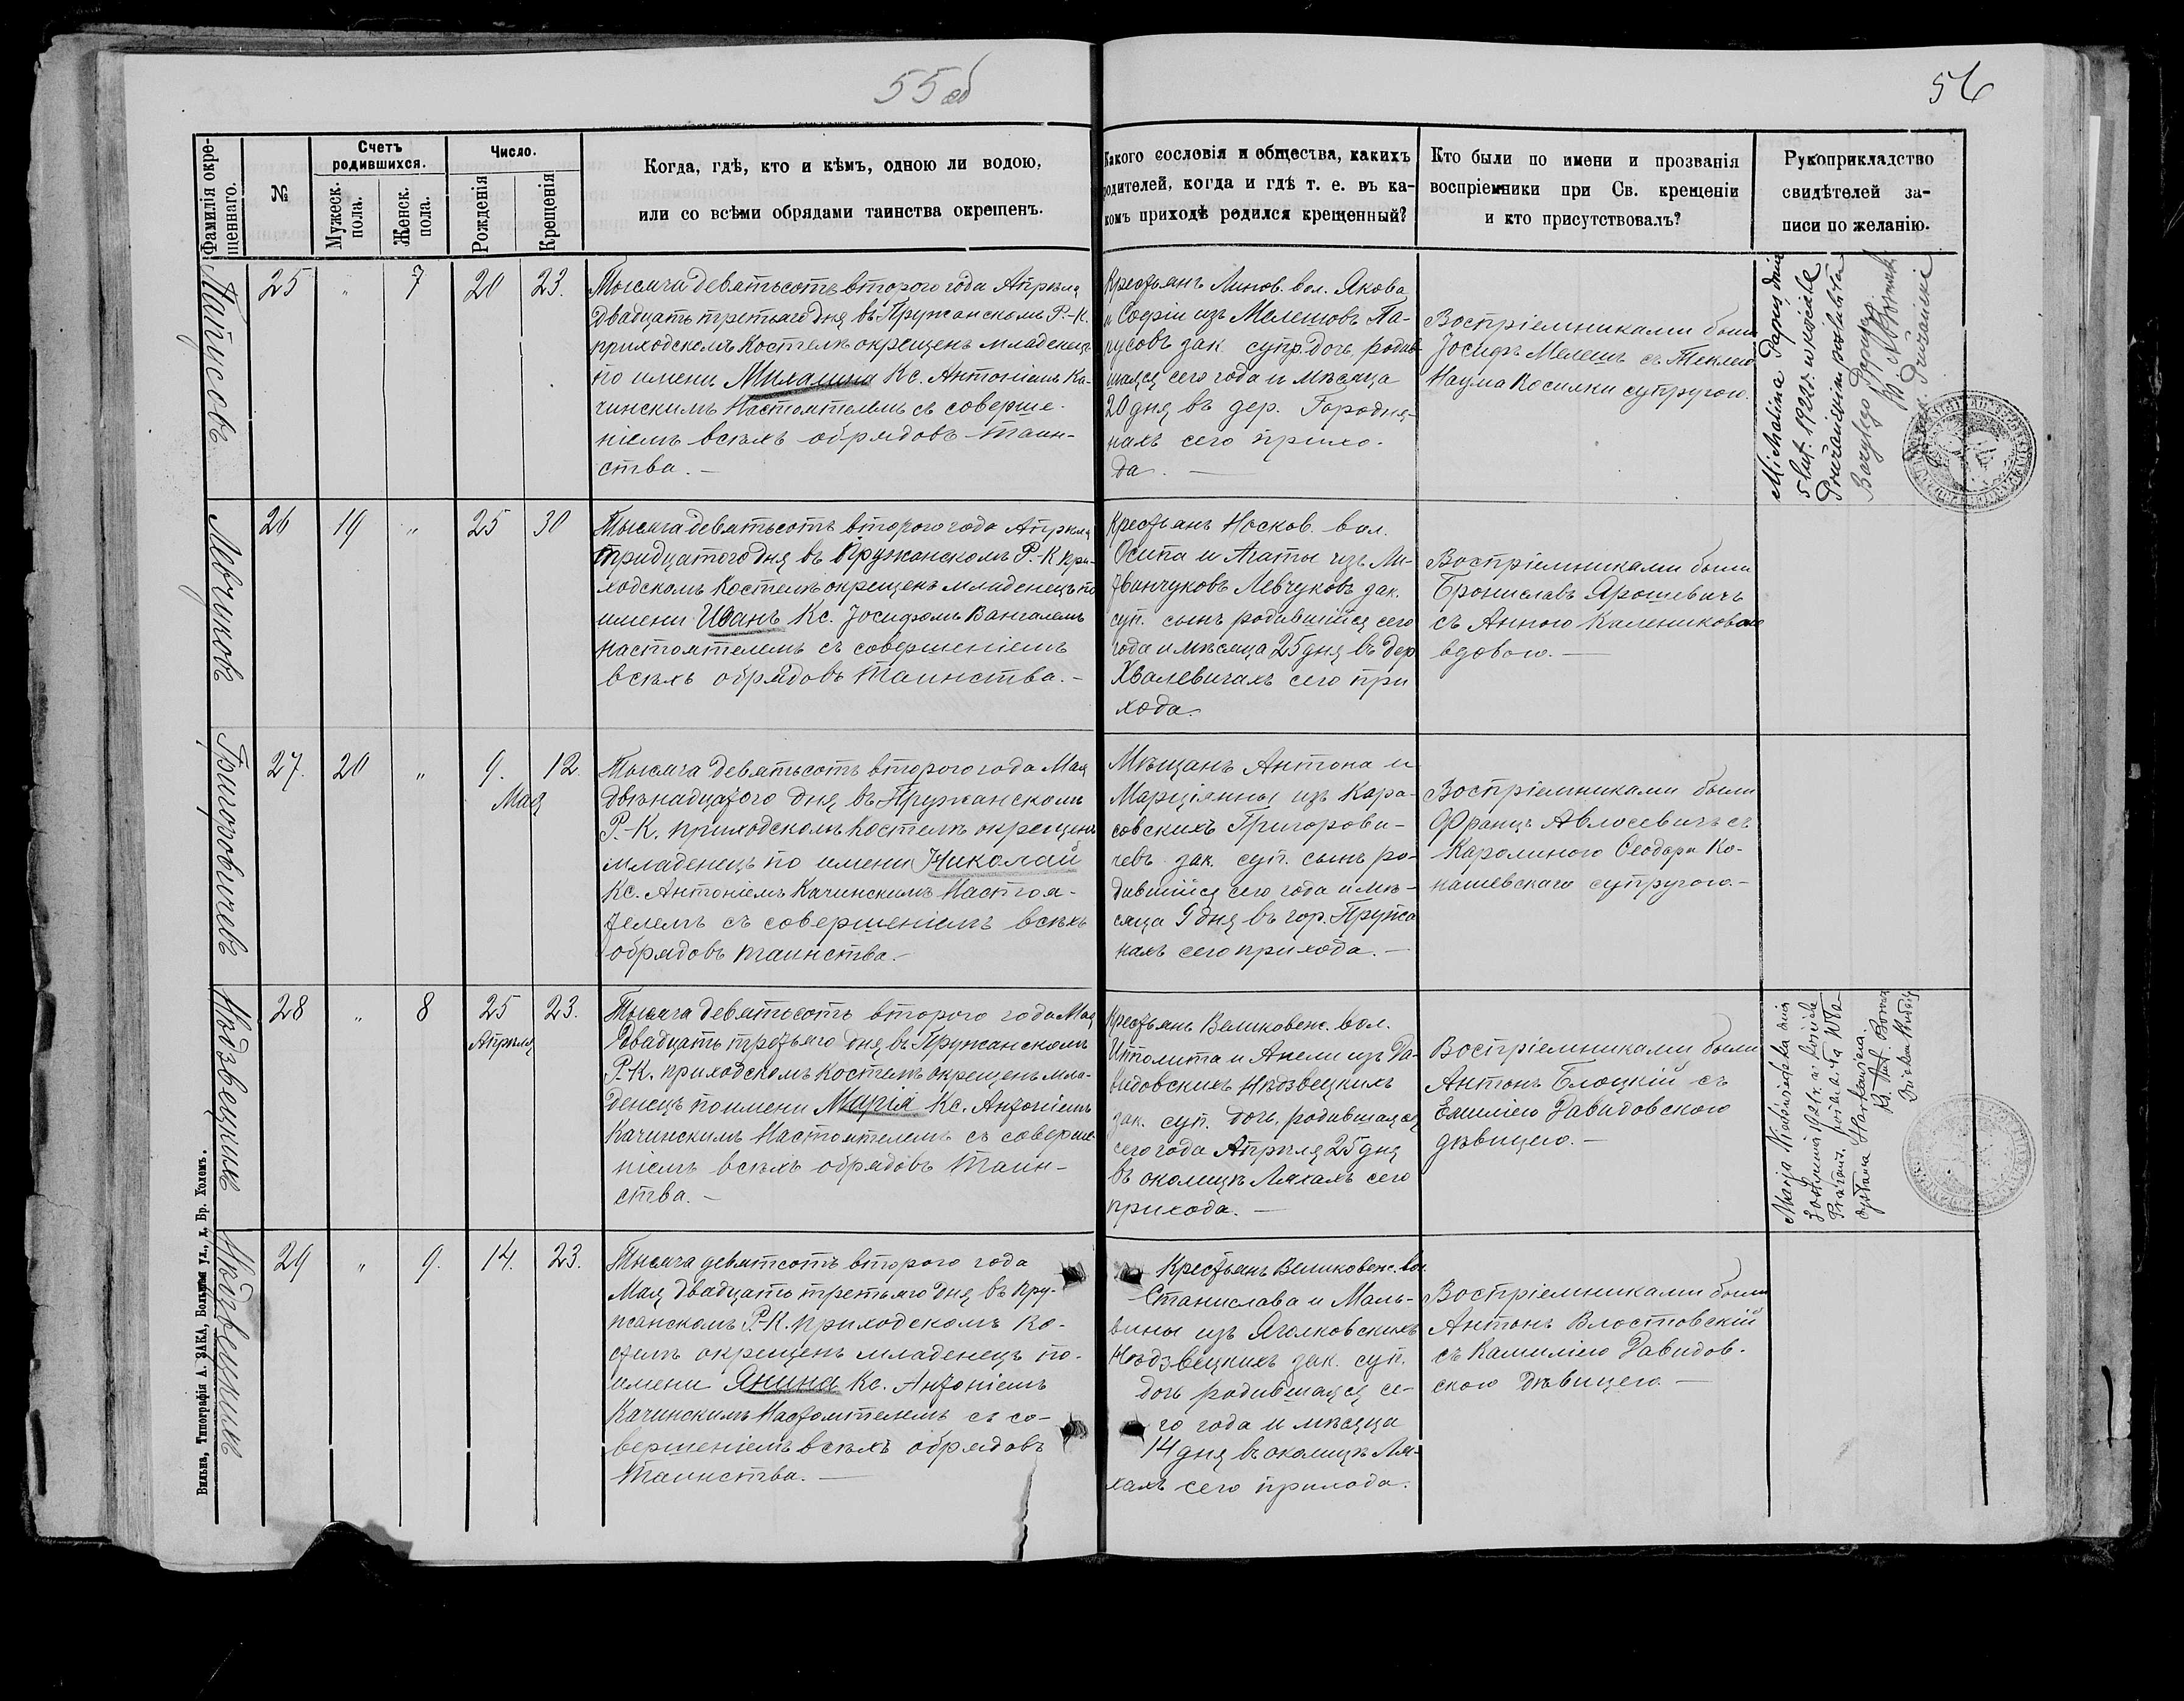 55 об
56
Фамилія окре-
щеннаго.
№
Счетъ
родившихся.
Мужеск.
пола.
Женск.
пола.
Число.
Рожденія
Крещенія
Когда, гдѣ, кто и кѣмъ, одною ли водою,
или со всѣми обрядами таинства окрещенъ.
Какого сословія и общества, какихъ
родителей, когда и гдѣ т. е. въ ка-
комъ приходѣ родился крещенный?
Кто были по имени и прозванія
воспріемники при Св. крещеніи
и кто присутствовалъ?
Рукоприкладство
свидѣтелей за-
писи по желанію.
Папусовъ
25
"
7
20
23.
Тысяча девятьсотъ второго года Апрѣля
двадцать третьяго дня въ Пружанскомъ Р.-К.
приходскомъ Костелѣ окрещенъ младенецъ
по имени Михалина Кс. Антоніемъ Ка-
чинскимъ Настоятелемъ съ соверше-
ніемъ всѣхъ обрядовъ Таин-
ства. —
Крестьянъ Линов. вол. Якова
и Софіи изъ Мелешовъ Па-
пусовъ зак. супр. дочь, родив-
шаяся сего года и мѣсяца
20 дня въ дер. Городня-
нахъ сего прихо-
да. —
Воспріемниками были
Іосифъ Мелешъ съ Теклею
Наума Косилки супругою.
Michalina Papuś dnia
5 lut. 1922 r. w kościele
Prużańskim poślubiła
Bazylego
26
19
"
25
30
Левчуковъ
Тысяча девятьсотъ второго года Апрѣля
тридцатого дня въ Пружанскомъ Р.-К при-
ходскомъ Костелѣ окрещенъ младенецъ по
имени Иванъ Кс. Іосифомъ Вангалемъ
настоятелемъ съ совершеніемъ
всѣхъ обрядовъ Таинства. —
Крестьянъ Носков. вол.
Осипа и Агаты изъ Ли-
твинчуковъ Левчуковъ зак.
суп. сынъ родившійся сего
года и мѣсяца 25 дня въ дер
Хвалевичахъ сего при
хода.
Воспріемниками были
Брониславъ Ярошевичъ
съ Анною Калениковою
вдовою. —
Григоровичевъ
27.
20
"
9.
Мая
12
Тысяча девятьсотъ второго года Мая
двѣнадцатого дня въ Пружанскомъ
Р.-К. приходскомъ Костелѣ окрещенъ
младенецъ по имени Николай
Кс. Антоніемъ Качинскимъ Настоя-
телемъ съ совершеніемъ всѣхъ
обрядовъ таинства. —
Мѣщанъ Антона и
Марціянны изъ Кара-
совскихъ Григорови-
чевъ зак. суп. сынъ ро-
дившійся сего года и мѣ-
сяца 9 дня въ гор. Пружа
нахъ сего прихода. —
Воспріемниками были
Францъ Авлосевичъ съ
Каролиною Ѳеодора Ко-
нашевскаго супругою. —
Нѣдзвецкихъ
28
"
8
25
Апрѣля
23.
Тысяча девятьсотъ второго года Мая
двадцать третьяго дня въ Пружанскомъ
Р.-К. приходскомъ Костелѣ окрещенъ мла-
денецъ по имени Марія Кс. Антоніемъ
Качинскимъ Настоятелемъ съ соверше-
ніемъ всѣхъ обрядовъ Таин-
ства. —
Крестьянъ Великовес. вол.
Ипполита и Анели изъ Да-
видовскихъ Нѣдзвецкихъ
зак. суп. дочь, родившаяся
сего года Апрѣля 25 дня
въ околицѣ Ляхахъ сего
прихода. —
Воспріемниками были
Антонъ Блоцкій съ
Емиліею Давидовскою
дѣвицею. —
Marja Niedźwiedzka dnia
w kościele
Prużańs. poślubiła Wła-
dysława
Нѣдзвецкихъ
29
"
9.
14.
23.
Тысяча девятсотъ второго года
Мая двадцать третьяго дня въ Пру-
жанскомъ Р.-К. приходскомъ Ко-
стелѣ окрещенъ младенецъ по
имени Янина Кс. Антоніемъ
Качинскимъ Настоятелемъ съ со-
вершеніемъ всѣхъ обрядовъ
Таинства. —
Крестьянъ Великовес. вол.
Станислава и Маль-
вины изъ Яголковскихъ
Нѣдзвецкихъ зак. суп.
дочь родившаяся се-
го года и мѣсяца
14 дня въ околицѣ Ля-
хахъ сего прихода.
Воспріемниками были
Антонъ Властовскій
съ Камиліею Давидов-
скою дѣвицею. —
Вильна, Типографія А. ЗАКА, Большая ул., д. Бр. Холемъ.